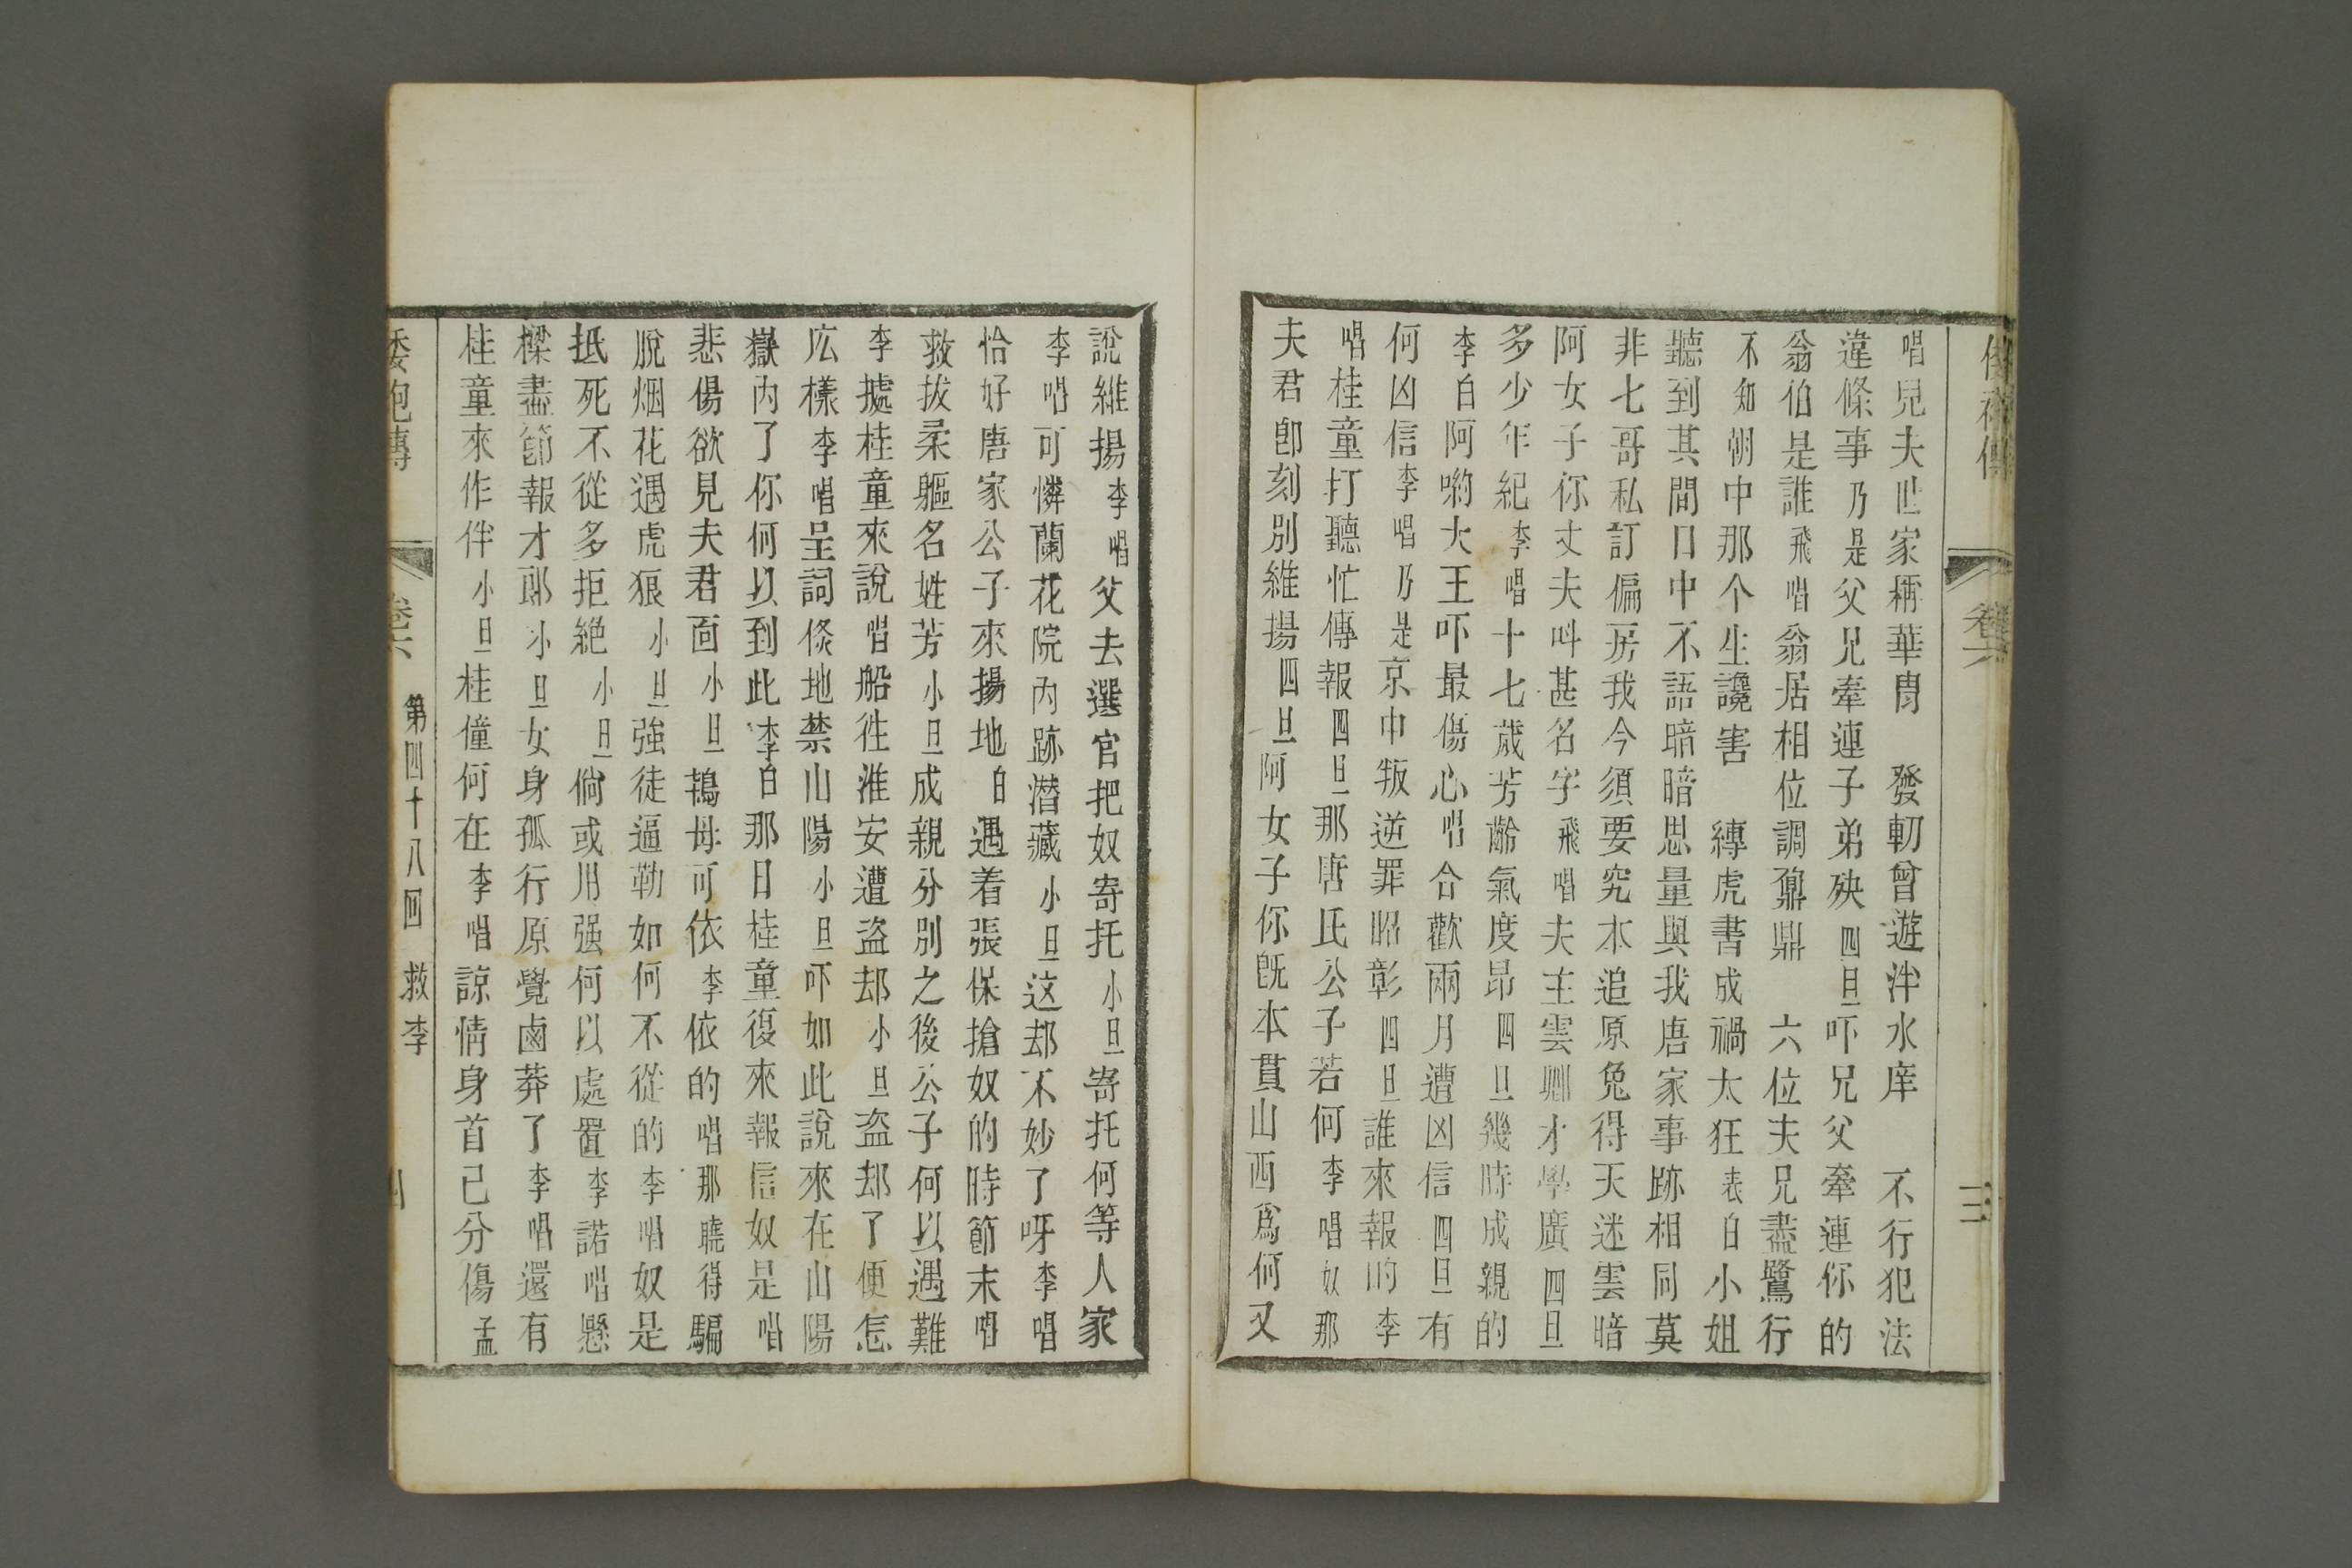 倭袍傳
卷六
三
唱兒夫世家稱華胄　發軔曾遊泮水庠　不行犯法
違條事乃是父兄牽連子弟殃四旦吓兄父牽連你的
翁伯是誰飛唱翁居相位調鼐鼎　六位夫兄盡鷺行
不知朝中那个生讒害　縳虎書成禍太狂表白小姐
聽到其間口中不語暗暗思量與我唐家事跡相同莫
非七哥私訂偏房我今須要究本追原免得天迷雲暗
阿女子你丈夫呌甚名字飛唱夫主雲卿才學廣四旦
多少年紀李唱十七歲芳齡氣度昂四旦幾時成親的
李白阿喲大王吓最傷心唱合歡兩月遭凶信四旦有
何凶信李唱乃是京中叛逆罪昭彰四旦誰來報的李
唱桂童打聽忙傳報四旦那唐氏公子若何李唱奴那
夫君卽刻別維揚四旦阿女子你旣本貫山西爲何又
說維揚李唱父去選官把奴寄托小旦寄托何等人家
李唱可憐蘭花院內跡潛藏小旦这却不妙了呀李唱
恰好唐家公子來揚地白遇着張保搶奴的時節末唱
救拔柔軀名姓芳小旦成親分別之後公子何以遇難
李據桂童來說唱船徃淮安遭盜刦小旦盜刦了便怎
庅樣李唱呈詞倐地禁山陽小旦吓如此說來在山陽
嶽內了你何以到此李白那日桂童復來報信奴是唱
悲傷欲見夫君面小旦鴇母可依李依的唱那曉得騙
脫烟花遇虎狼小旦強徒逼勒如何不從的李唱奴是
抵死不從多拒絶小旦倘或用强何以處置李諾唱懸
樑盡節報才郎小旦女身孤行原覺鹵莽了李唱還有
桂童來作伴小旦桂僮何在李唱諒情身首已分傷孟
倭袍傳
卷六
第四十八回　救李
四